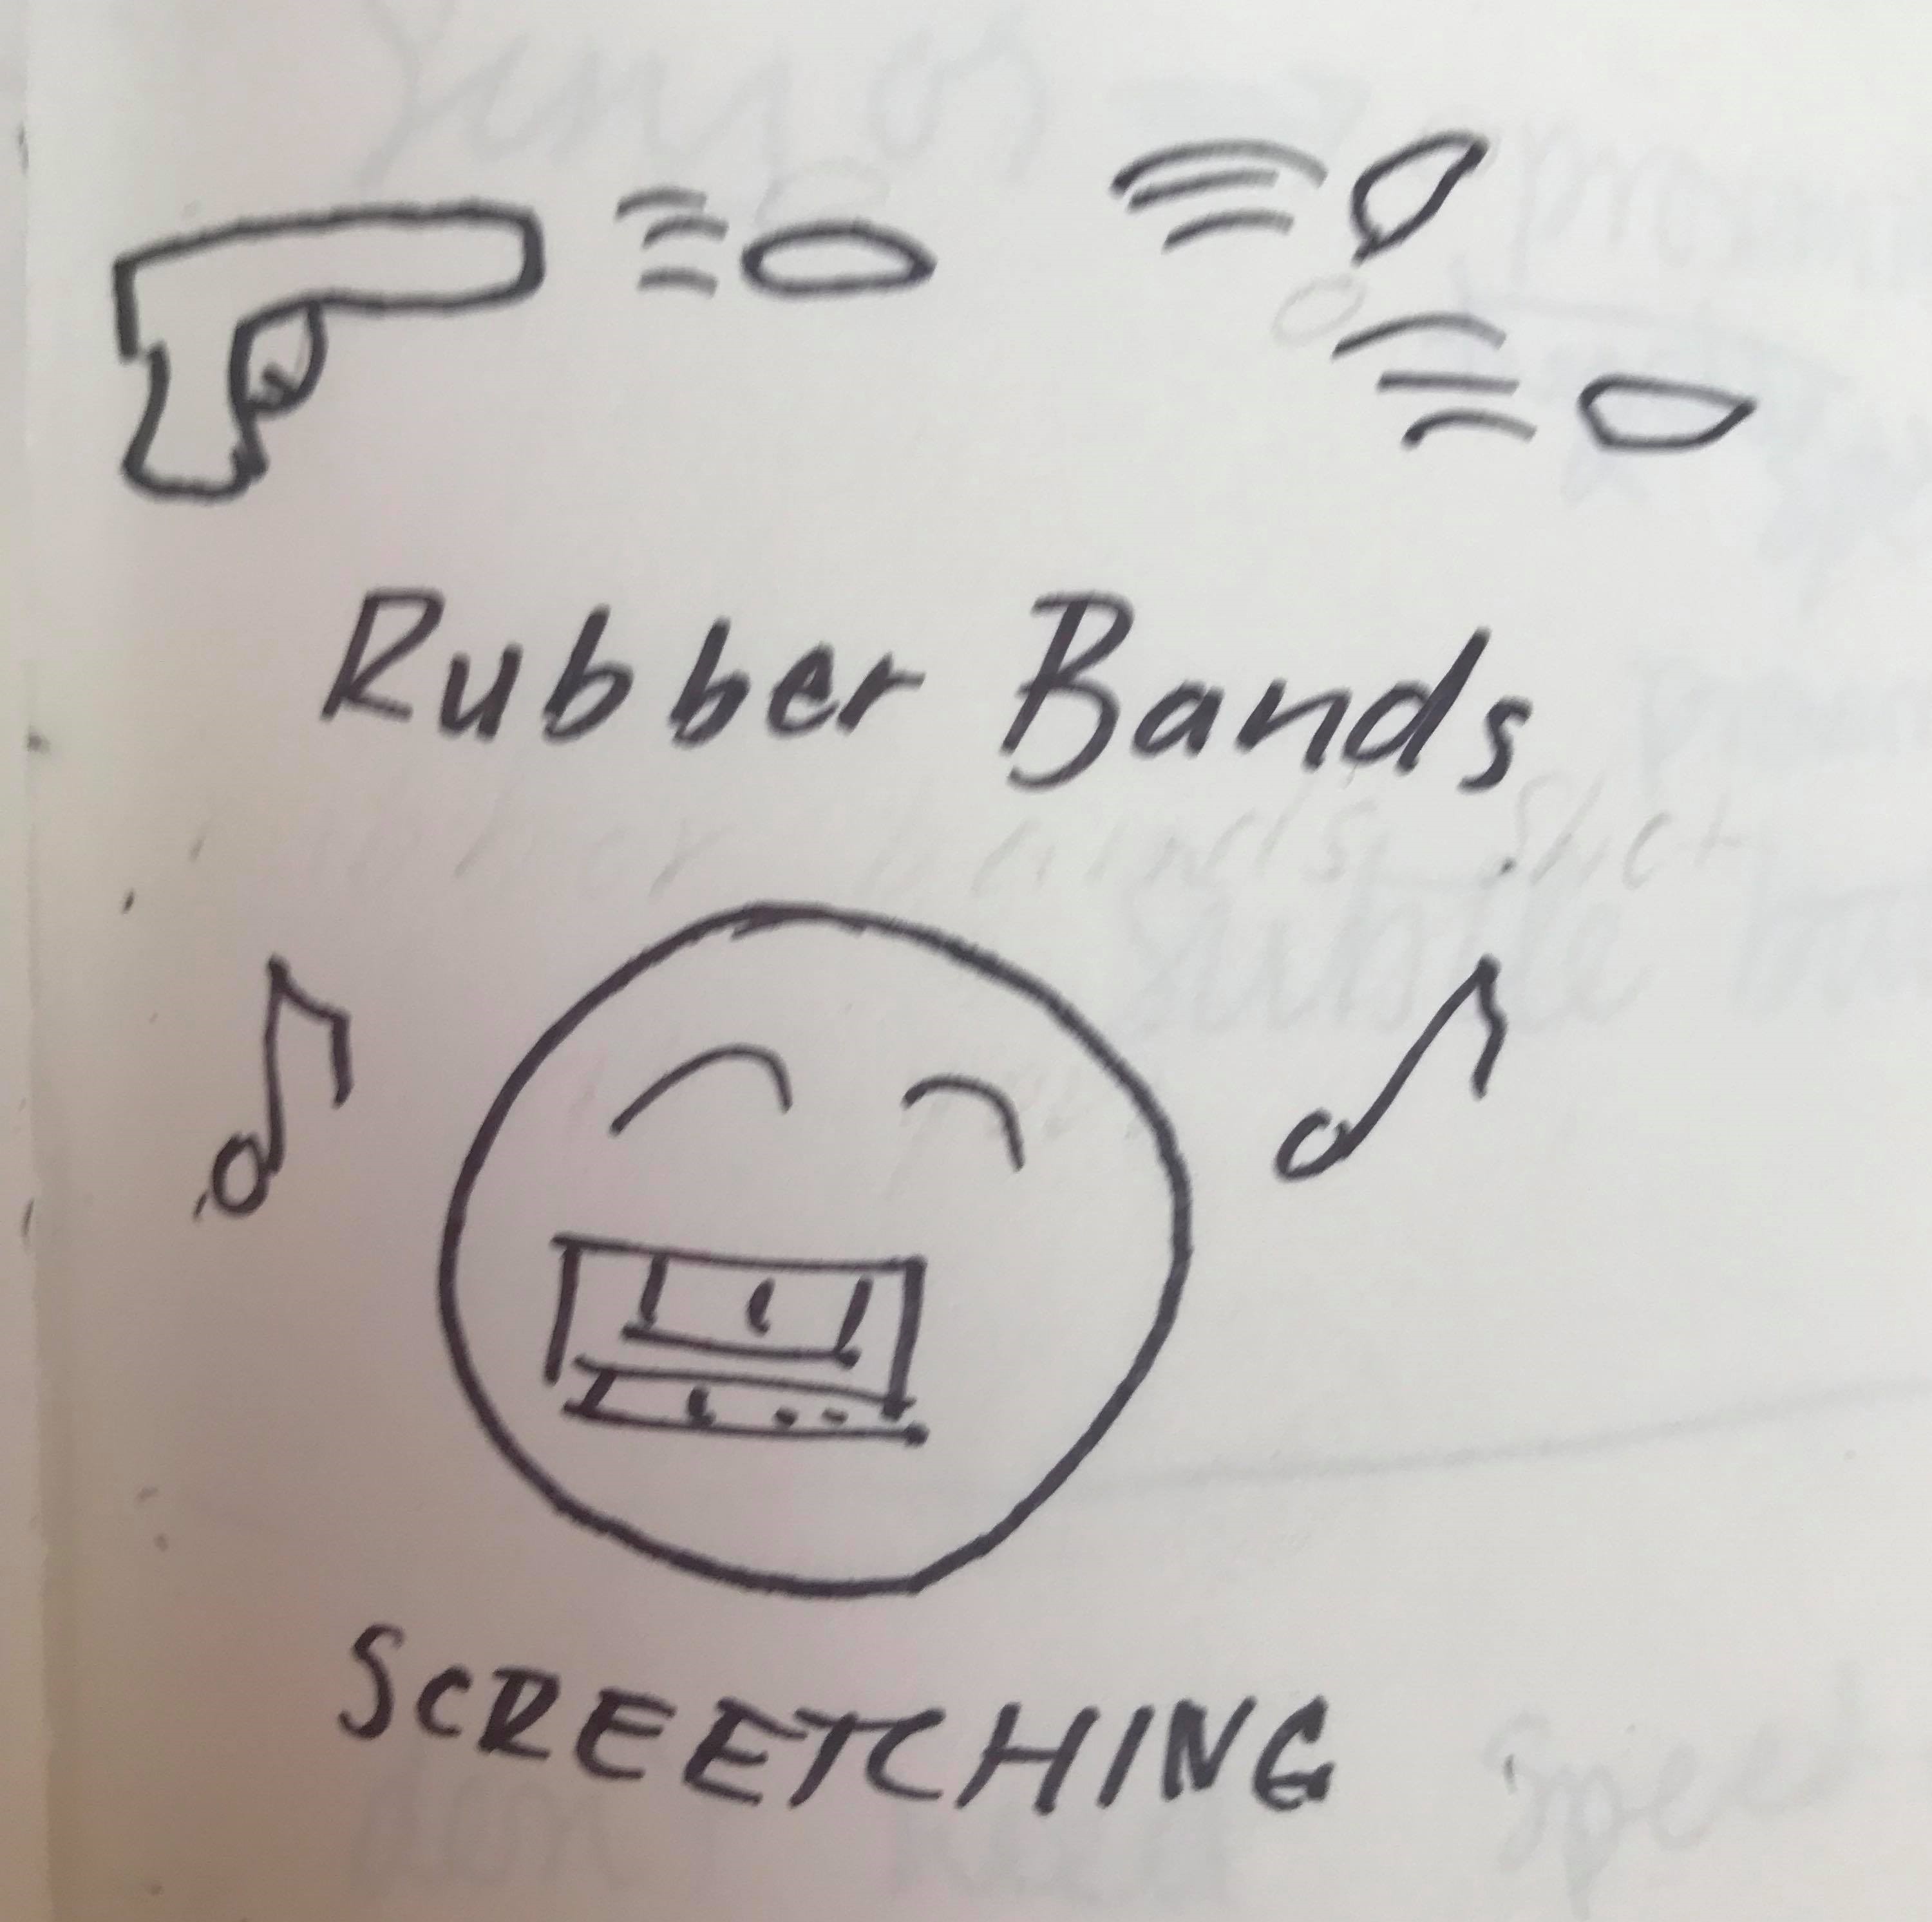 Rubber Bands
SCREETCHING